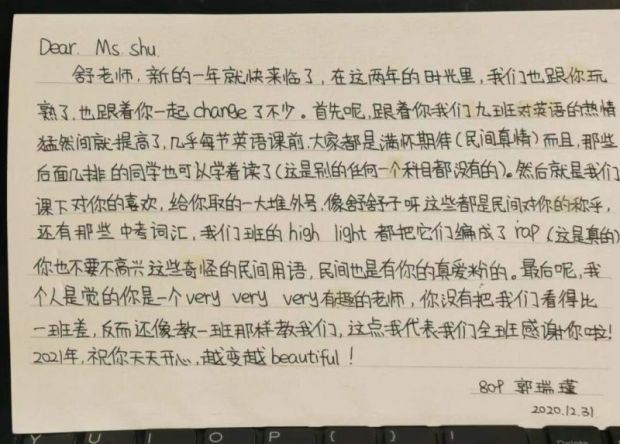 Dear. Ms. shu
舒老师，新的一年就快来临了，在这两年的时光里，我们也跟你玩
熟了，也跟着你一起change了不少。首先呢，跟着你我们九班对英语的热情
猛然间就提高了，几乎每节英语课前，大家都是满怀期待(民间真情)而且，那些
后面几排的同学也可以学着读了(这是别的任何一个科目都没有的)。然后就是我们
课下对你的喜欢，给你取的一大堆外号，像舒舒子呀这些都是民间对你的称乎，
还有那些中考词汇，我们班的high light都把它们编成了rap(这是真的)
你也不要不高兴这些奇怪的民间用语，民间也是有你的真爱粉的。最后呢，我
个人是觉的你是一个very very very有趣的老师，你没有把我们看得比
一班差，反而还像教一班那样教我们，这点我代表我们全班感谢你啦!
2021年，祝你天天开心，越变越beautiful!
809 郭瑞瑾
2020.12.31
Y U I O P { }
Delete